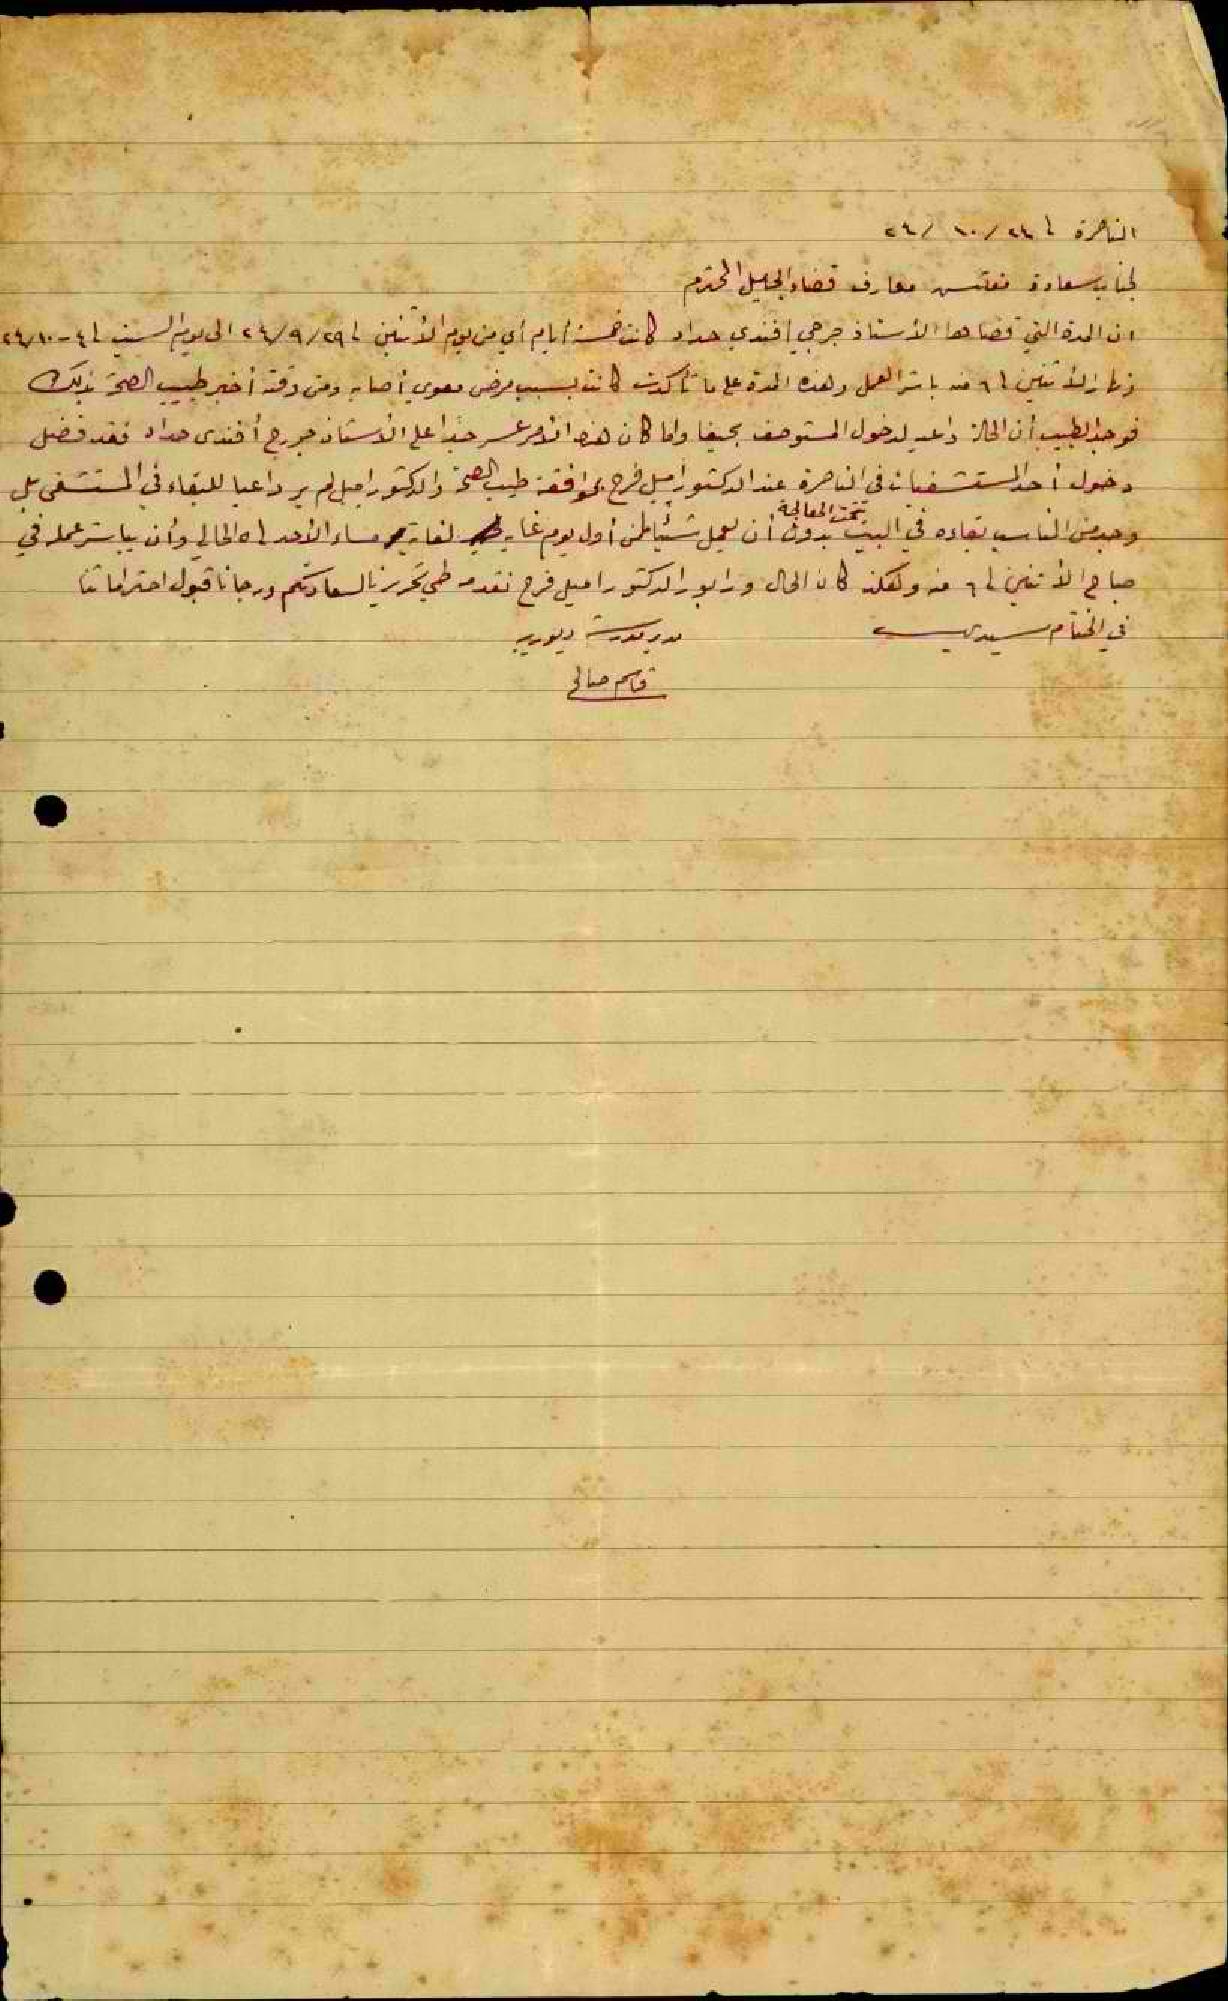 الناصرة في ٢٤ /١٠/ ٢٤
لجناب سعادة مفتش معارف قضاء الجليل المحترم
ان المدة التي قضاها الأستاذ جرجي أفندي حداد كانت خمسة أيام أي من يوم الأثنين في ٢٩/ ٩/ ٢٤ الى يوم السبت في ٤-١٠/ ٢٤
نهار الأثنين في ٦ منه باشر العمل وهذه المدة على ما تأكدت كانت بسبب مرض معوي أصابه ومن وقته أخبر طبيب الصحة بذلك
فوجد الطبيب أن الحالة داعية لدخول المستوصف بحيفا ولما كان هذا الأمر عسر جدا على الأستاذ جورج أفندي حداد فقد فضل
دخول أحد المستشفيات في الناصرة عند الدكتور اميل فرح بموافقة طبيب الصحة والدكتور اميل لم ير داعيا للبقاء في المستشفى بل
وجد من المناسب بقاءه في البيت تحت المعالجة بدون أن يعمل شيئا من أول يوم غيابه لغاية مساء الأحد في ٥ الحالي وأن يباشر عمله في
صباح الأثنين في ٦ منه وهكذا كان الحال ورابور الدكتور اميل فرح نقدمه طي تحريرنا لسعادتكم ورجانا قبول احتراماتنا
في الختام سيدي
مدير مدرسة
قاسم صالح